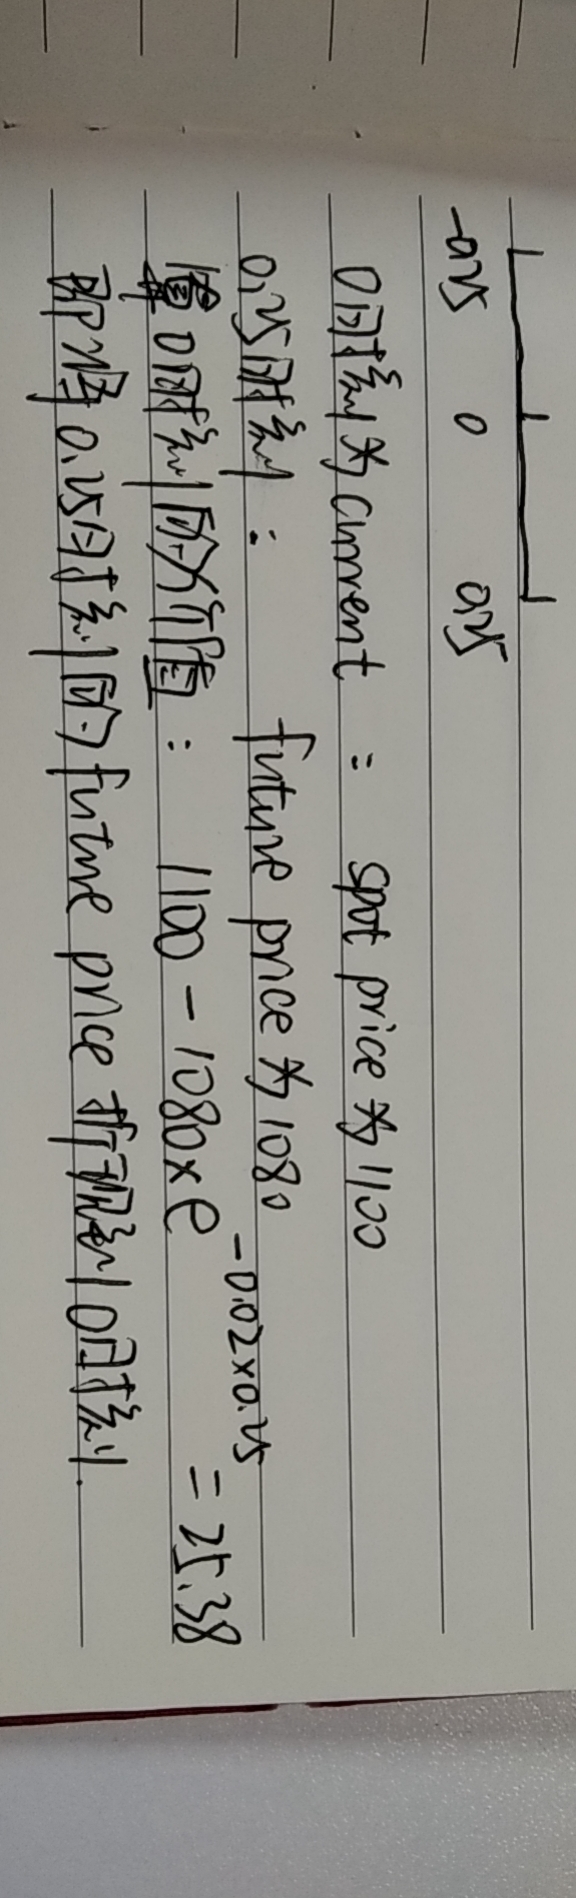 -0.25 0 0.25
0时刻为current : spot price为1100
0.25时刻 : future price为1080
算0时刻的价值 : 1100 - 1080×e^-0.02×0.25 = 25.38
即将0.25时刻的future price折现到0时刻.